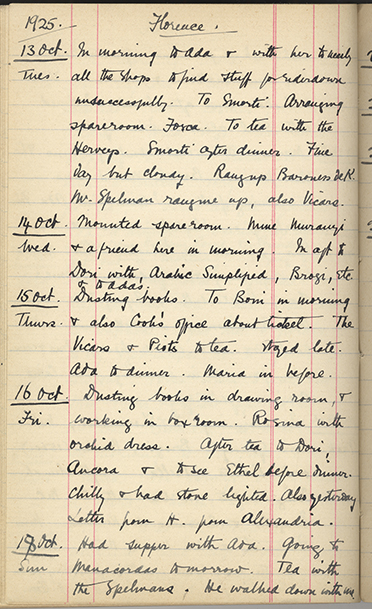 1925. Florence.
13 Oct. In morning to Ada & with her to nearly
Tues. all the shops to find stuff for eiderdown
unsuccessfully. To Smorti. Arranging
spare room. Fosca. To tea with the
Herveys. Smorti after dinner. Fine
day but cloudy. Rang up Baroness de K.
Mr. Spelman rang me up, also Vicars.
14 Oct. Mounted spare room. Mme
Wed. & a friend here in morning. In aft to
Dori with, Arabic Simplified, Brogi, etc.
& to Adas.
15 Oct. Dusting books. To Boni in morning
Thurs. & also Cook's office about ticket. The
Vicars & Piots to tea. Stayed late.
Ada to dinner. Maria in before.
16 Oct. Dusting books in drawing room, &
Fri. working in box room. Rosina with
orchid dress. After tea to Dori,
Ancora & to see Ethel before dinner.
Chilly & had stove lighted. Also yesterday
Letter from H. from Alexandria.
Oct. Had supper with Ada. Going to
Sun Manacordas tomorrow. Tea with
the Spelmans. He walked down with me.